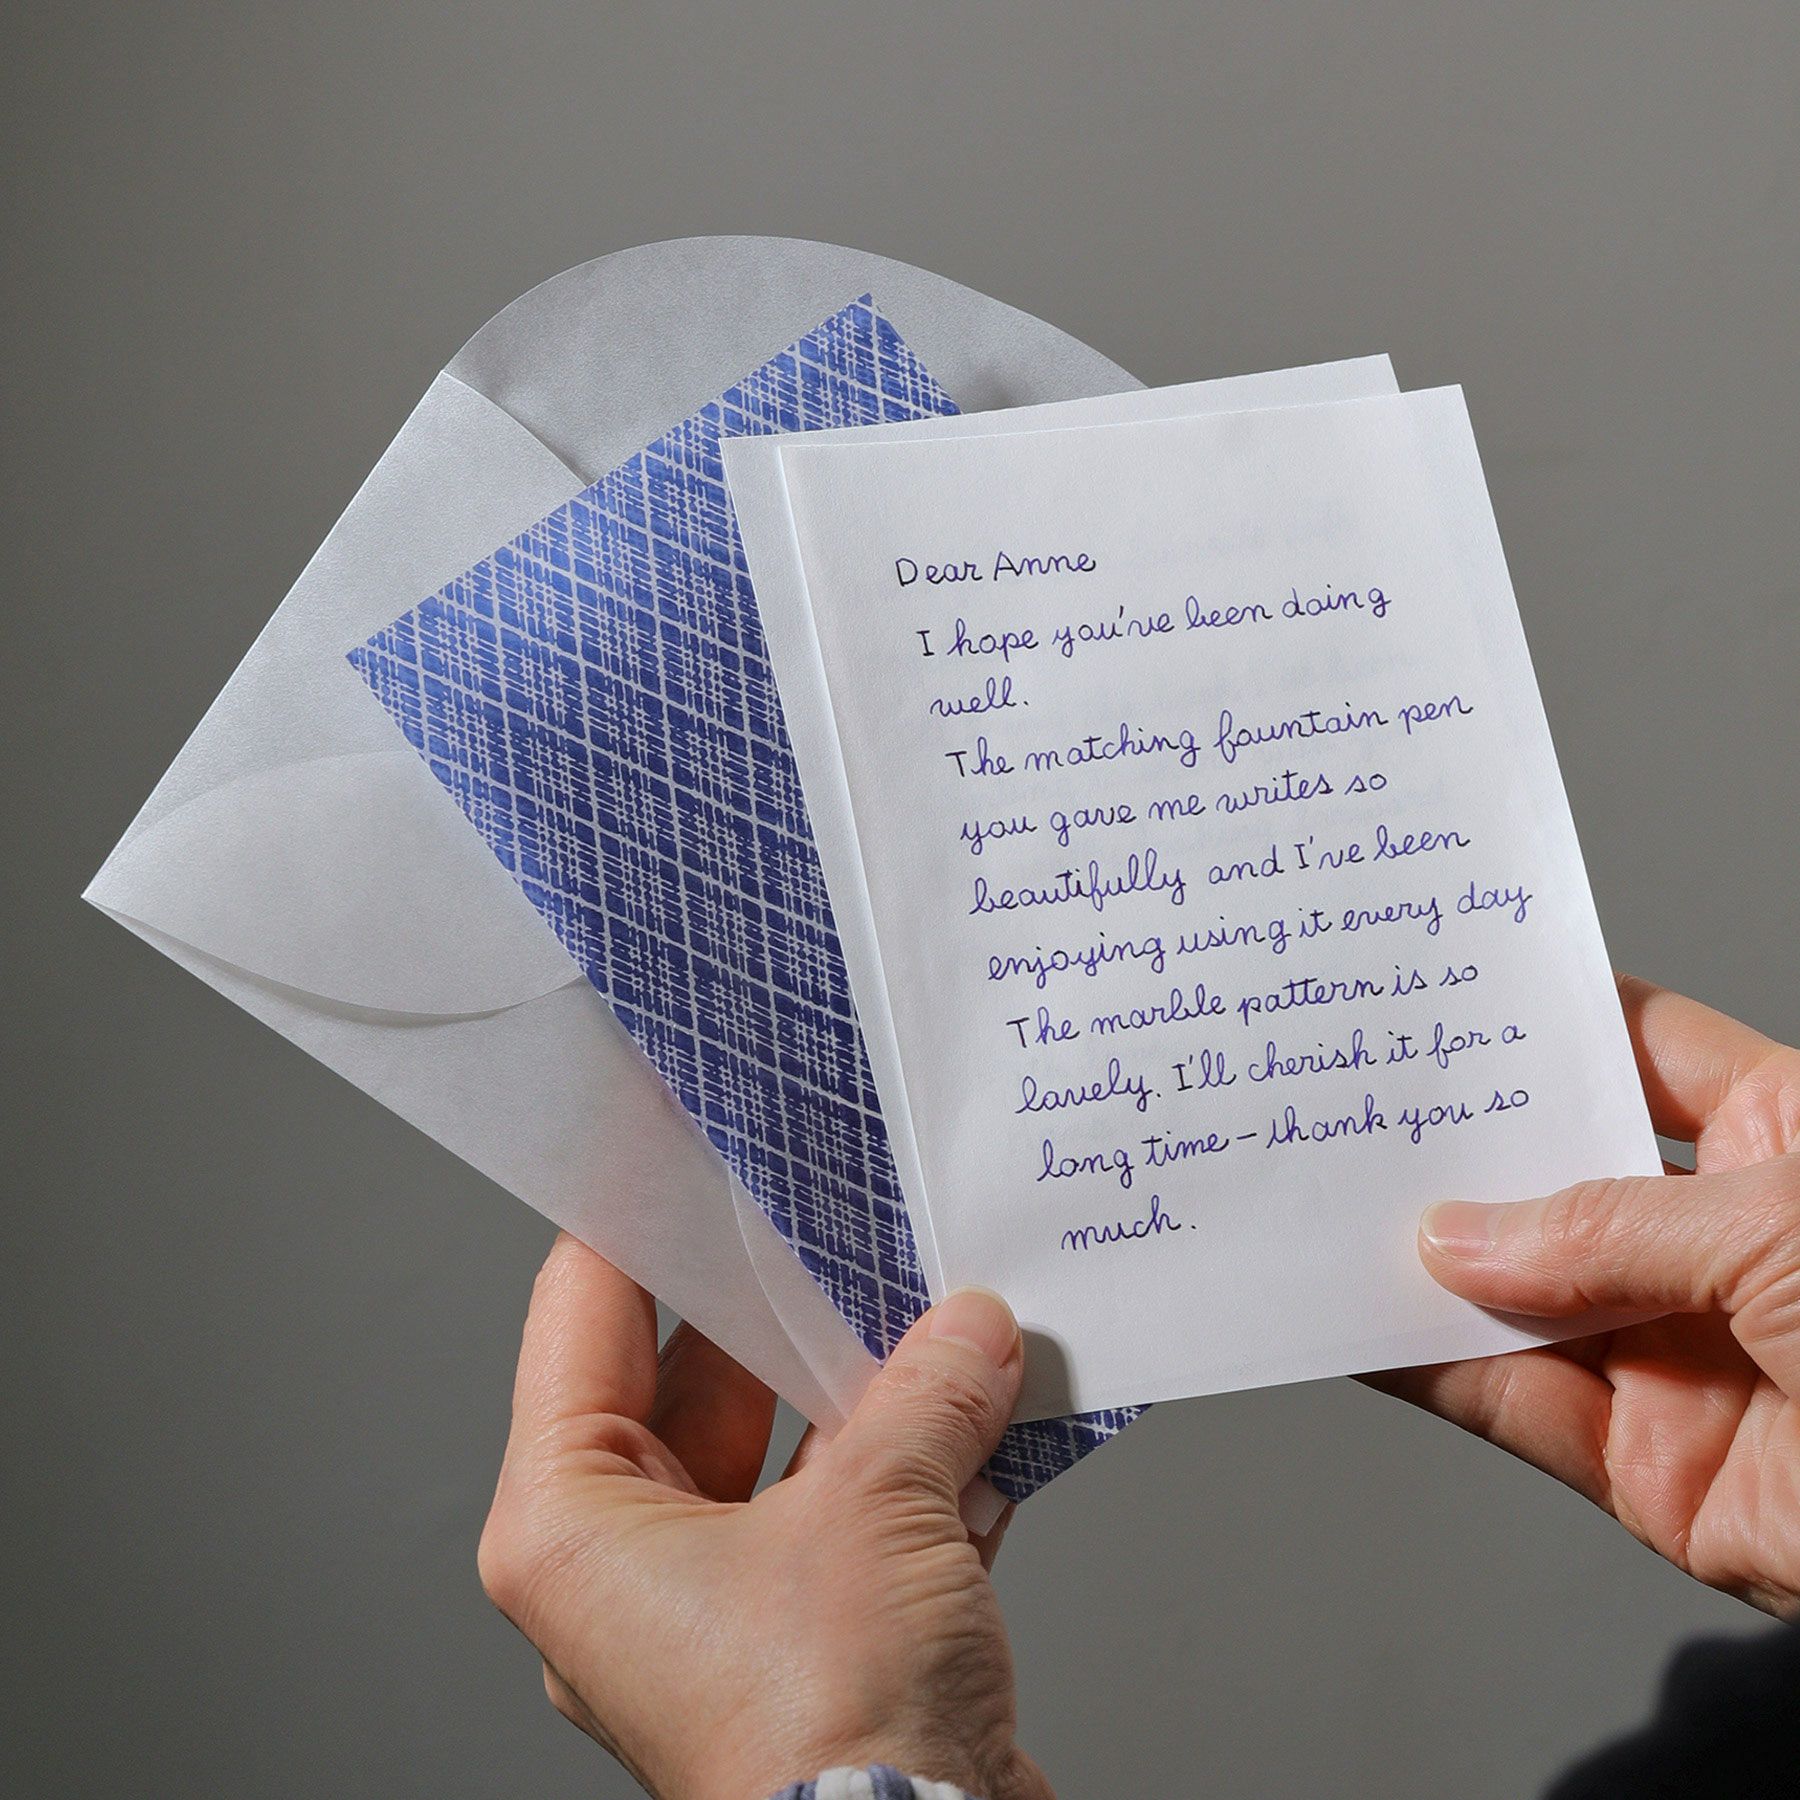 Dear Anne
I hope you've been doing
well.
The matching fountain pen
you gave me writes so
beautifully and I've been
enjoying using it every day
The marble pattern is so
lovely. I'll cherish it for a
long time – thank you so
much.